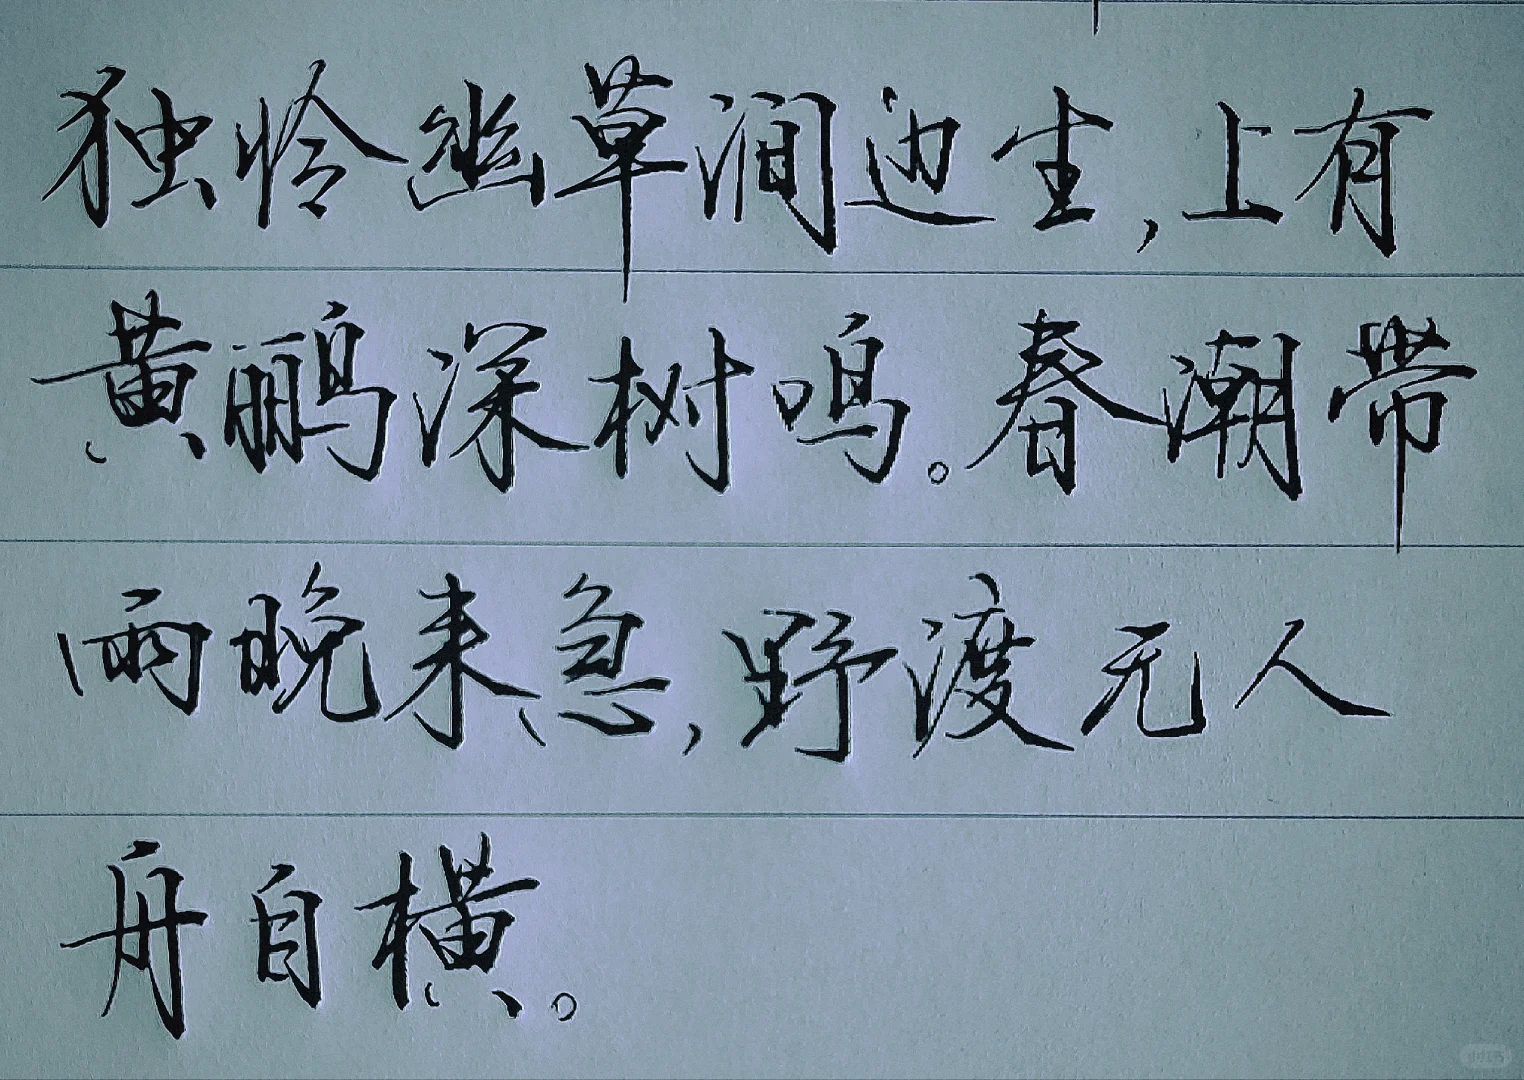 独怜幽草涧边生，上有
黄鹂深树鸣。春潮带
雨晚来急，野渡无人
舟自横。